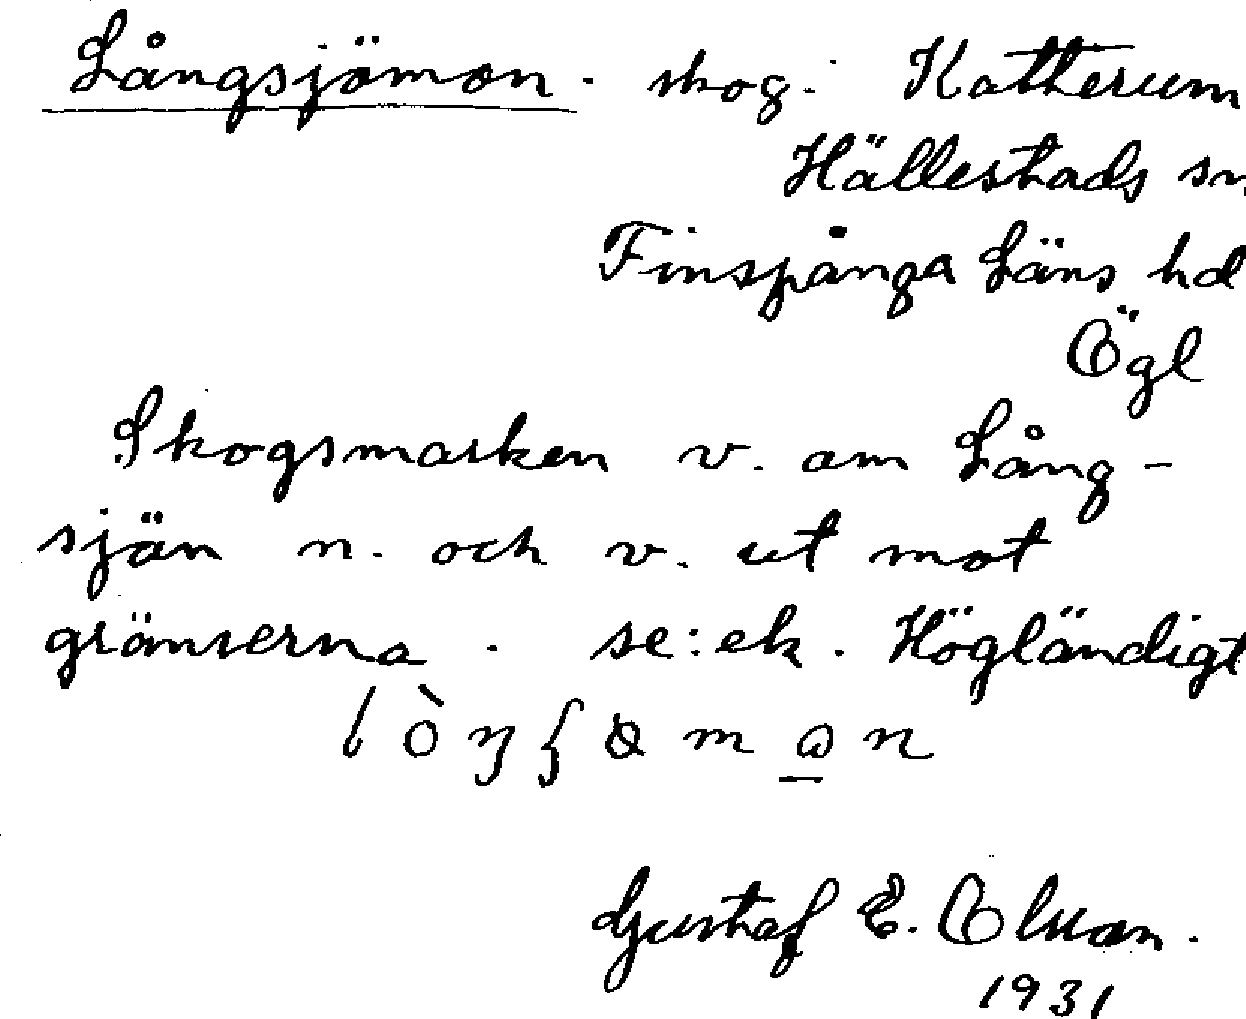 Långsjömon. skog. Katterum
Hällestads sn,
Finspånga Läns hd
Ögl
Skogsmarken v. om Lång-
sjön n. och v. ut mot
gränserna. se: ek. Högländigt
Gustaf E. Olson.
1931